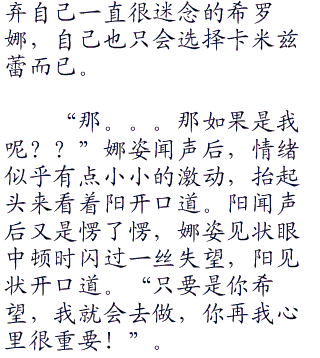 弃自己一直很迷念的希罗
娜，自己也只会选择卡米兹
蕾而已。
“那。。。那如果是我
呢？？”娜姿闻声后，情绪
似乎有点小小的激动，抬起
头来看着阳开口道。阳闻声
后又是愣了愣，娜姿见状眼
中顿时闪过一丝失望，阳见
状开口道。“只要是你希
望，我就会去做，你再我心
里很重要！”。